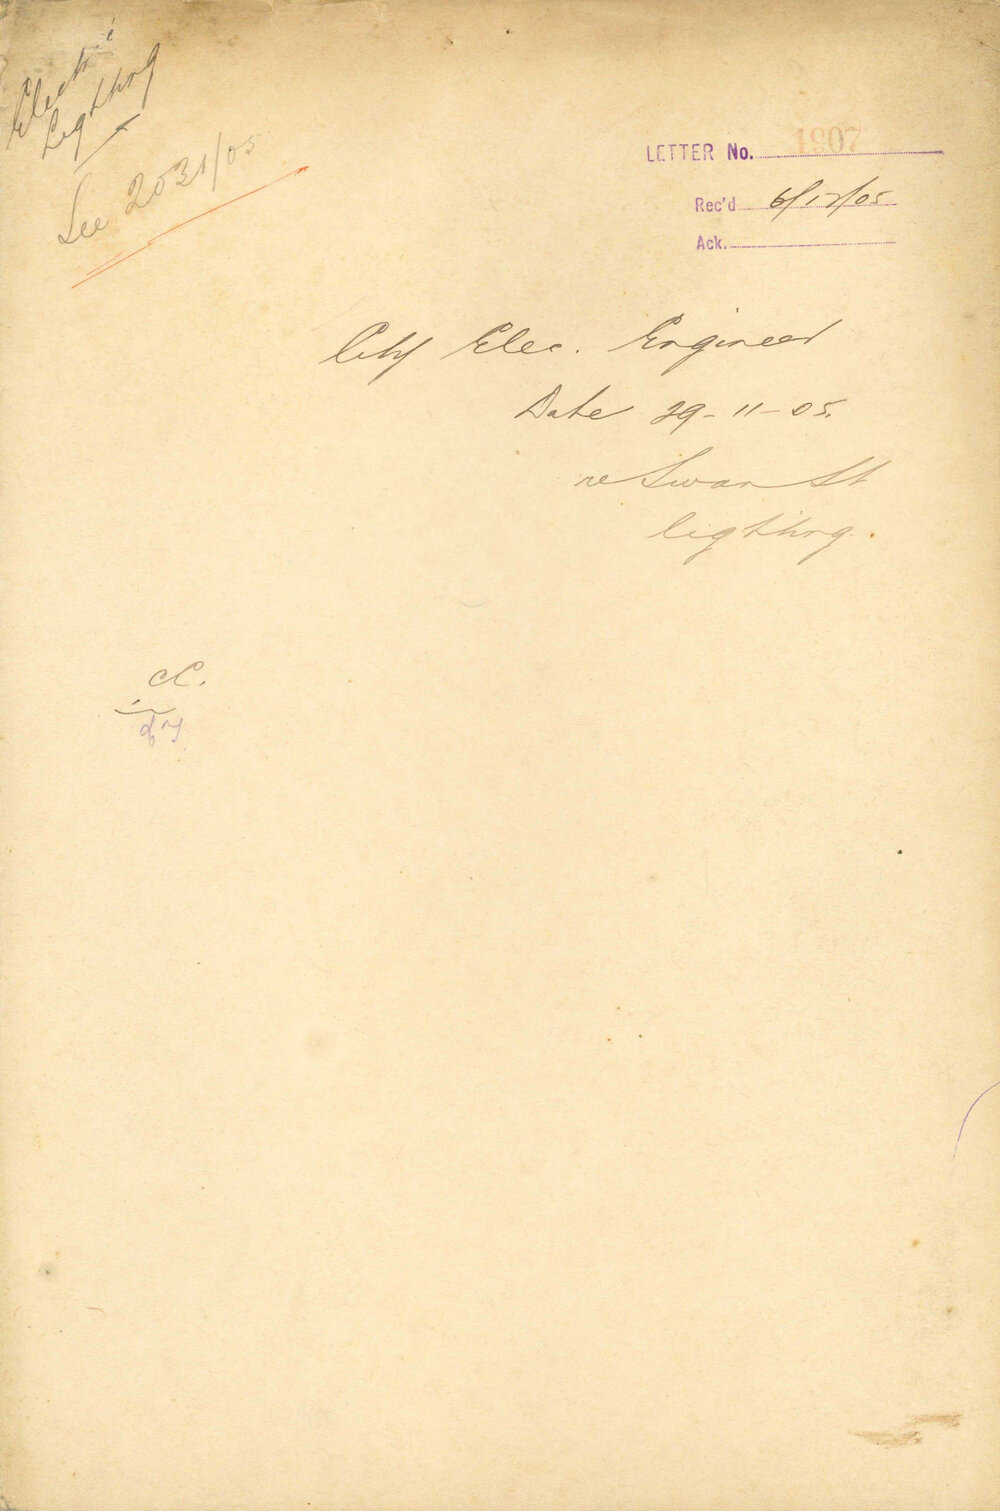 Electric
Lighting
See 2031/05
LETTER No. 1907
Rec'd 6/12/05
Ack.
City Elec. Engineer
Date 29-11-05.
re Swan St
lighting.